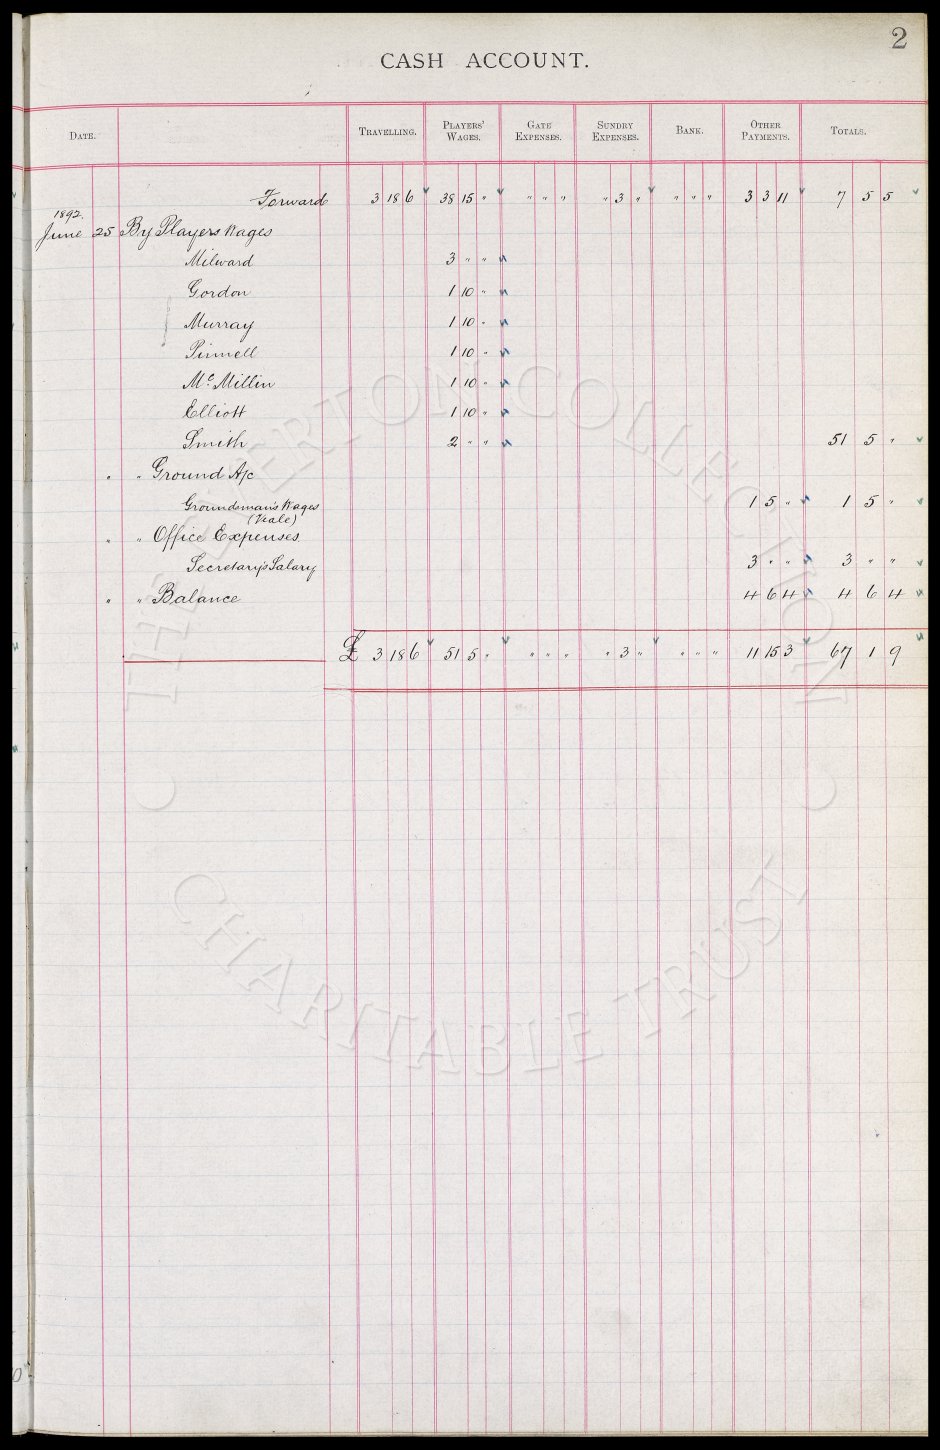 2
CASH ACCOUNT.
DATE. TRAVELLING. PLAYERS' WAGES. GATE EXPENSES. SUNDRY EXPENSES. BANK. OTHER PAYMENTS. TOTALS.
Forward 3 18 6 38 15 " " " " " 3 " " " " 3 3 11 7 5 5
1892.
June 25 By Players Wages
Milward 3 " "
Gordon 1 10 "
Murray 1 10 "
Pinnell 1 10 "
Mc. Millin 1 10 "
Elliott 1 10 "
Smith 2 " " 51 5 "
" " Ground A/c
Groundsman's Wages 1 5 " 1 5 "
(Neale)
" " Office Expenses
Secretary's Salary 3 " " 3 " "
" " Balance 4 6 4 4 6 4
£ 3 18 6 51 5 " " " " " 3 " " " " 11 15 3 67 1 9
THE EVERTON COLLECTION
CHARITABLE TRUST